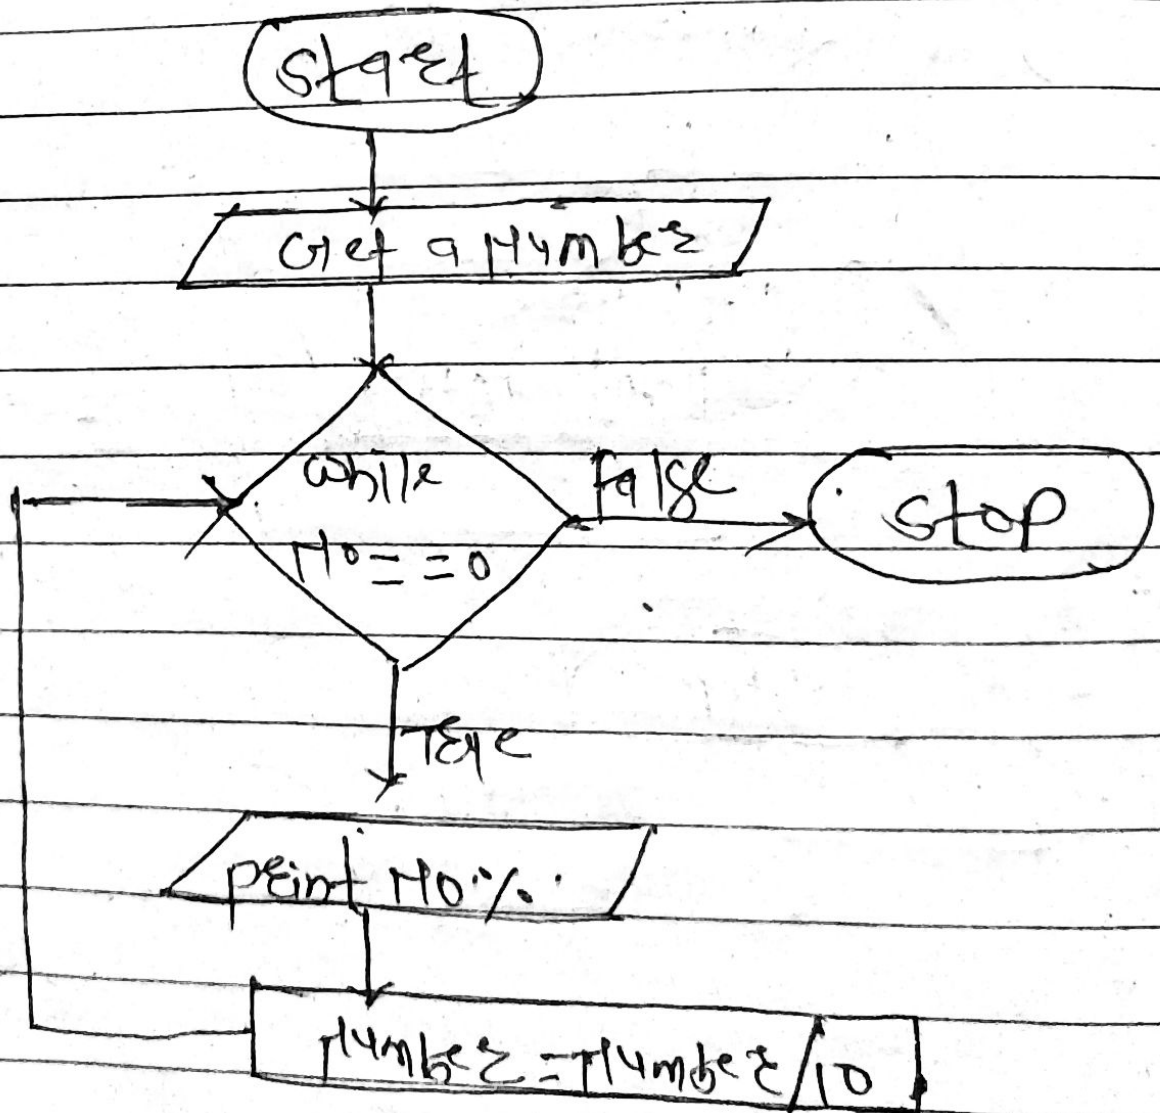 Start
Get a Number
while
No==0
False
Stop
True
print No%
Number=Number/10